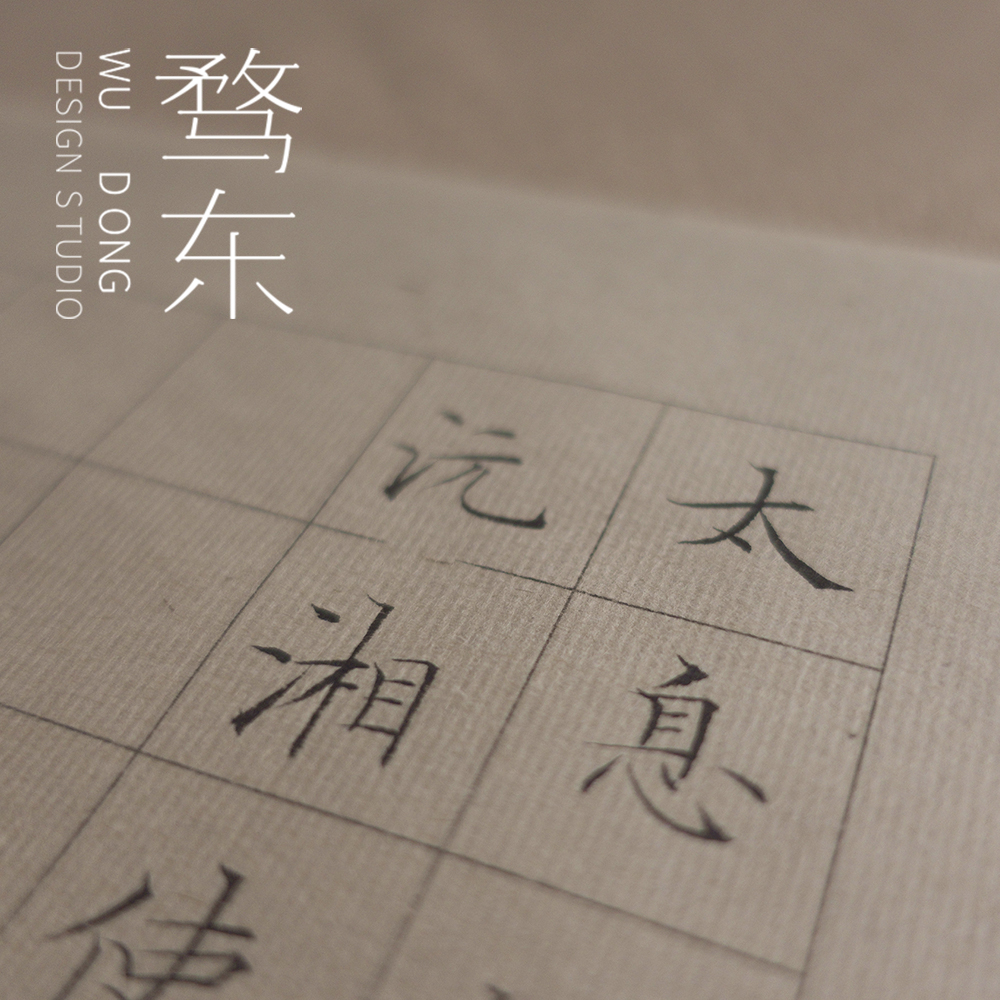 骛东
WU DONG
DESIGN STUDIO
太息
沅湘使